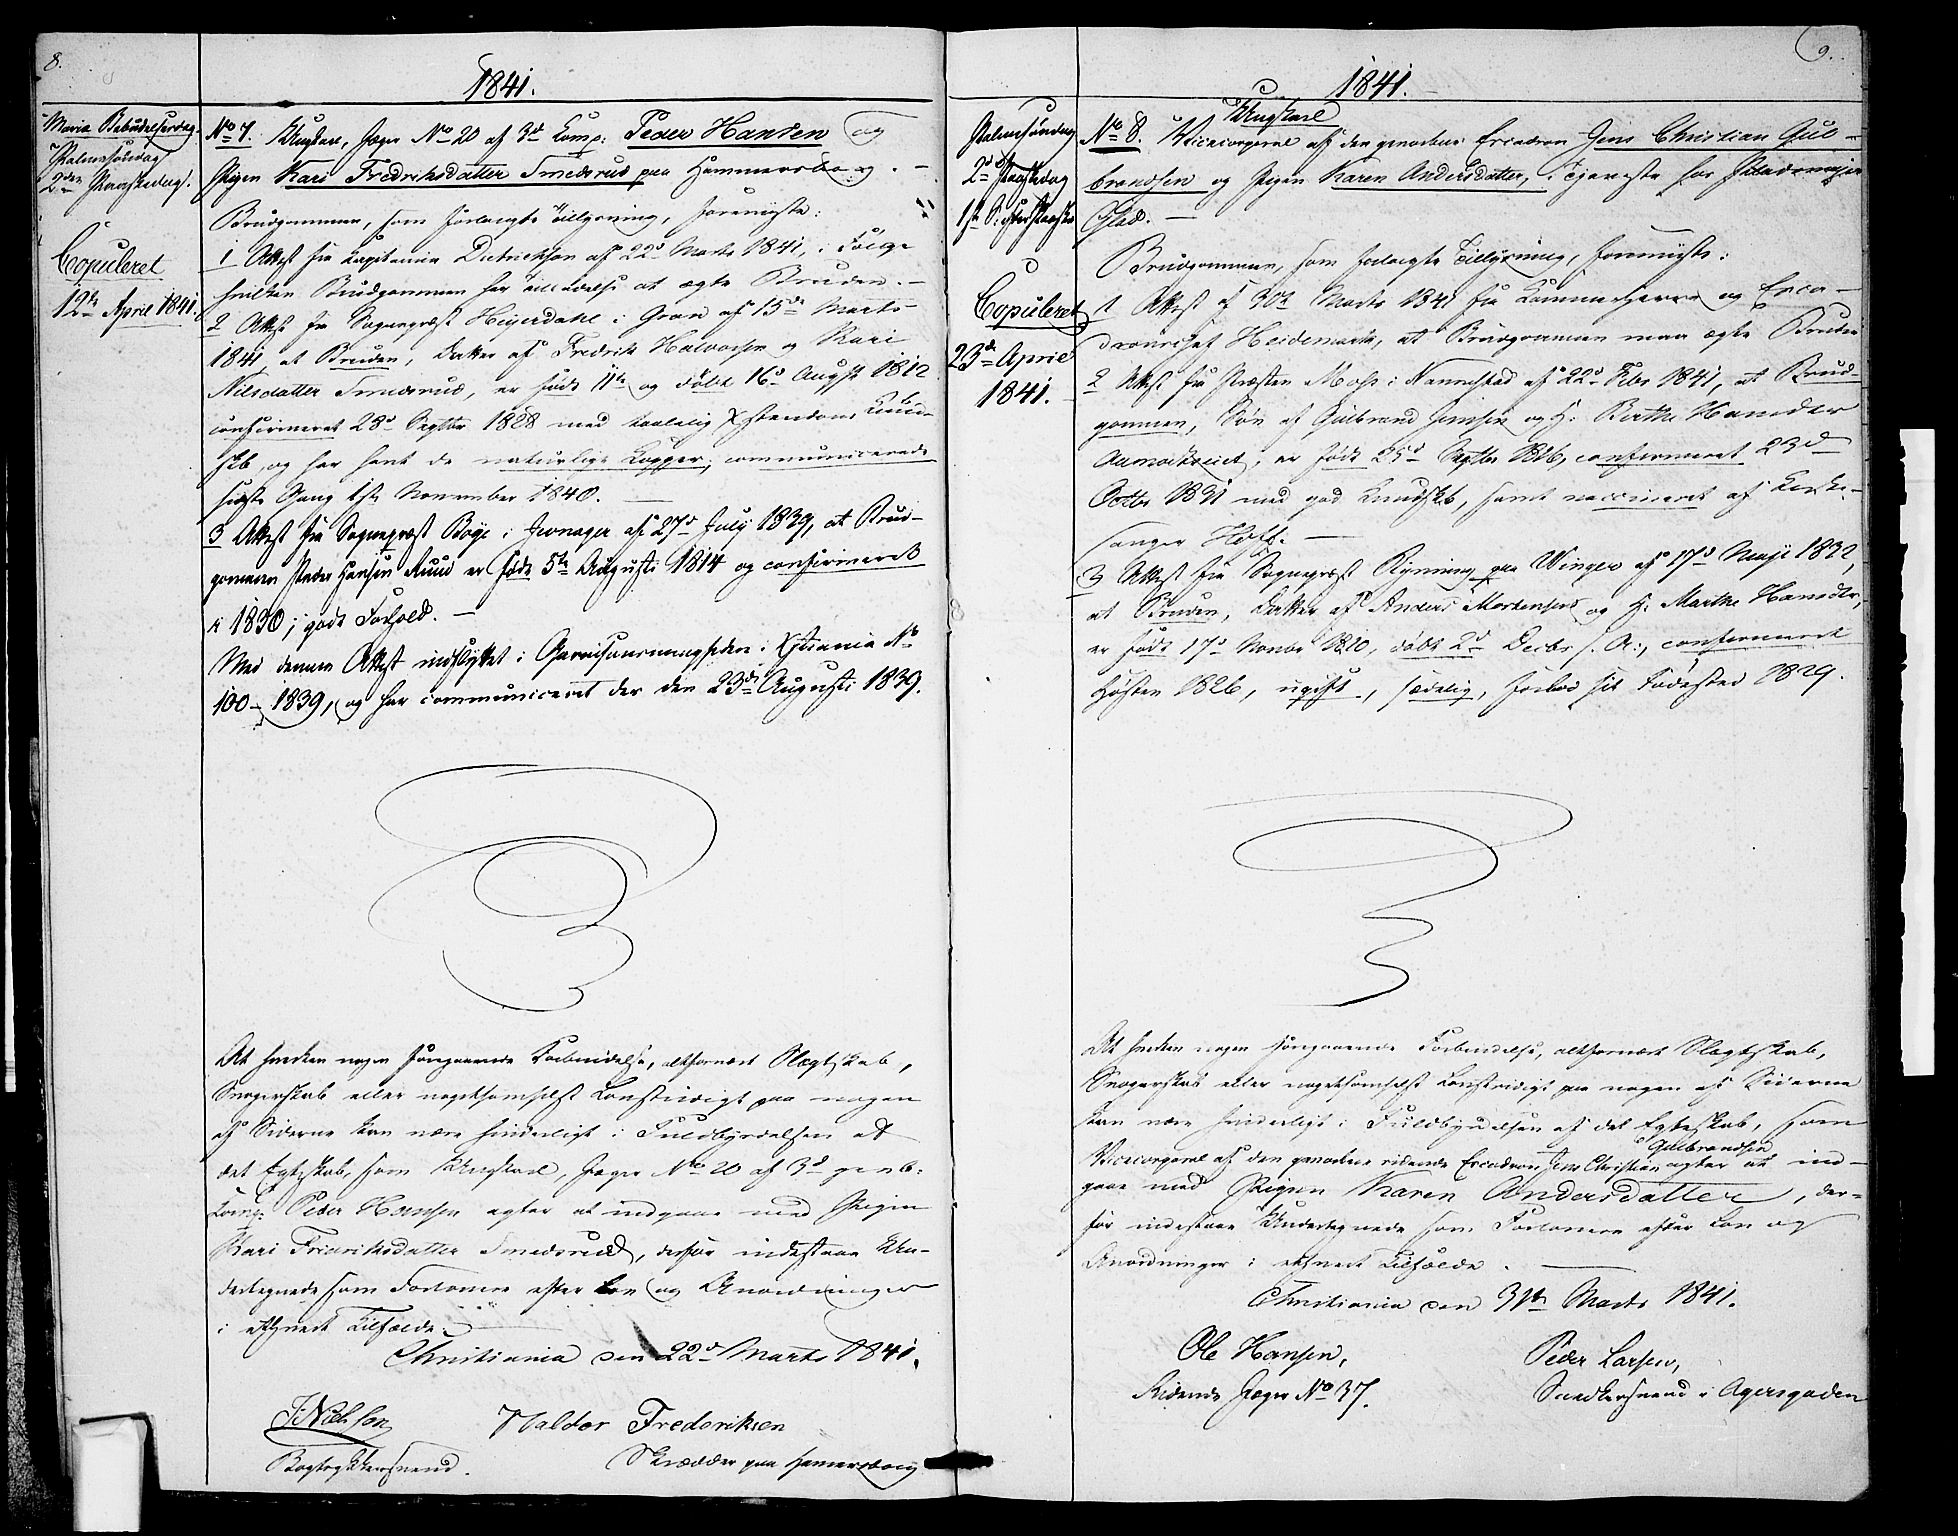 8.
1841.
Mariæ Bebudelsesdag.
Palmesöndag
2den Paaskedag.
Copuleret
12te April 1841.
No 7. Ungkarl, Jæger No 20 af 3d Comp: Peder Hansen og
Pigen Kari Fredriksdatter Smedsrud paa Hammersborg. —
Brudgommen, som forlangte Tillysning, foreviiste:
1 Attest fra Capitaine Dietrichson af 22d Marts 1841, i Følge
hvilken Brudgommen har Tilladelse at ægte Bruden. —
2 Attest fra Sognepræst Heyerdahl i Gran af 15de Marts
1841, at Bruden, Datter af Fredrik Halvorsen og Kari
Nilsdatter Smedsrud, er född 11te og döbt 16d August 1812
confirmeret 28d Septbr 1828 med taalelig Xstendoms Kund-
skb, og har havt de naturlige Kopper, communicerede
sidste Gang 1ste November 1840. —
3 Attest fra Sognepræst Boye i Jevnager af 27d July 1839, at Brud-
gommen Peder Hansen Ruud er född 5te Augusti 1814 og confirmeret
i 1830; godt Forhold. —
Med denne Attest indflyttet i Garnisonsmenigheden i Xstiania No
100 - 1839, og har communiceret der den 23de Augusti 1839.
At hverken nogen foregaaende Forbindelse, altfornært Slægtskab,
Svogerskab eller nogetsomhelst Lovstridigt paa nogen
af Siderne kan være hinderligt i Fuldbyrdelsen af
det Egteskab, som Ungkarl, Jæger No 20 af 3d genb:
Comp: Peder Hansen agter at indgaae med Pigen
Kari Fredriksdatter Smedsrud, derfor indestaae Un-
dertegnede som Forlovere efter Lov og Anordninger
i ethvert Tilfælde.
Christiania den 22d Marts 1841.
J. Nielsen
Bogtrykkersvend.
Haldor Frederiksen
Skrædder paa Hamersborg
9.
1841.
Palmesöndag
2d Paaskedag
1ste S. efter Paaske
Copuleret
23de April
1841.
Ungkarl
No 8. Vicecorporal af den genvorbne Escadron Jens Christian Gul-
brandsen og Pigen Karen Andersdatter, i Tjeneste hos
Glad. —
Brudgommen, som forlangte Tillysning, foreviiste:
1 Attest af 30te Marts 1841 fra Kammerherre og Esca-
dronschef Heidemark, at Brudgommen maa ægte Bruden
2 Attest fra Præsten Moss i Nannestad af 22d Febr 1841, at Brud-
gommen, Sön af Gulbrand Jensen og H. Birthe Hansdtr
er född 25d Septbr 1816, confirmeret 23d
Octbr 1831 med god Kundskb, samt vaccineret af Kirke-
sanger Hoff. —
3 Attest fra Sognepræst Rynning paa Winger af 17d Maji 1832,
at Bruden, Datter af Anders Mortensen og H. Marthe Hansdtr,
er född 17d Novbr 1810, döbt 2d Decbr s. A., confirmeret
Hösten 1826, ugift, sædelig, forlod sit Födested 1829.
At hverken nogen foregaaende Forbindelse, altfornært Slægtskab,
Svogerskab eller nogetsomhelst Lovstridigt paa nogen af Siderne
kan være hinderligt i Fuldbyrdelsen af det Egteskab, som
Vicecorporal af den genvorbne ridende Escadron Jens Christian Gulbrandsen agter at ind-
gaae med Pigen Karen Andersdatter, der-
for indestaae Undertegnede som Forlovere efter Lov og
Anordninger i ethvert Tilfælde. —
Christiania den 31te Marts 1841.
Ole Hansen,
Ridende Jæger No 37.
Peder Larsen,
Snedkersvend i Agersgaden